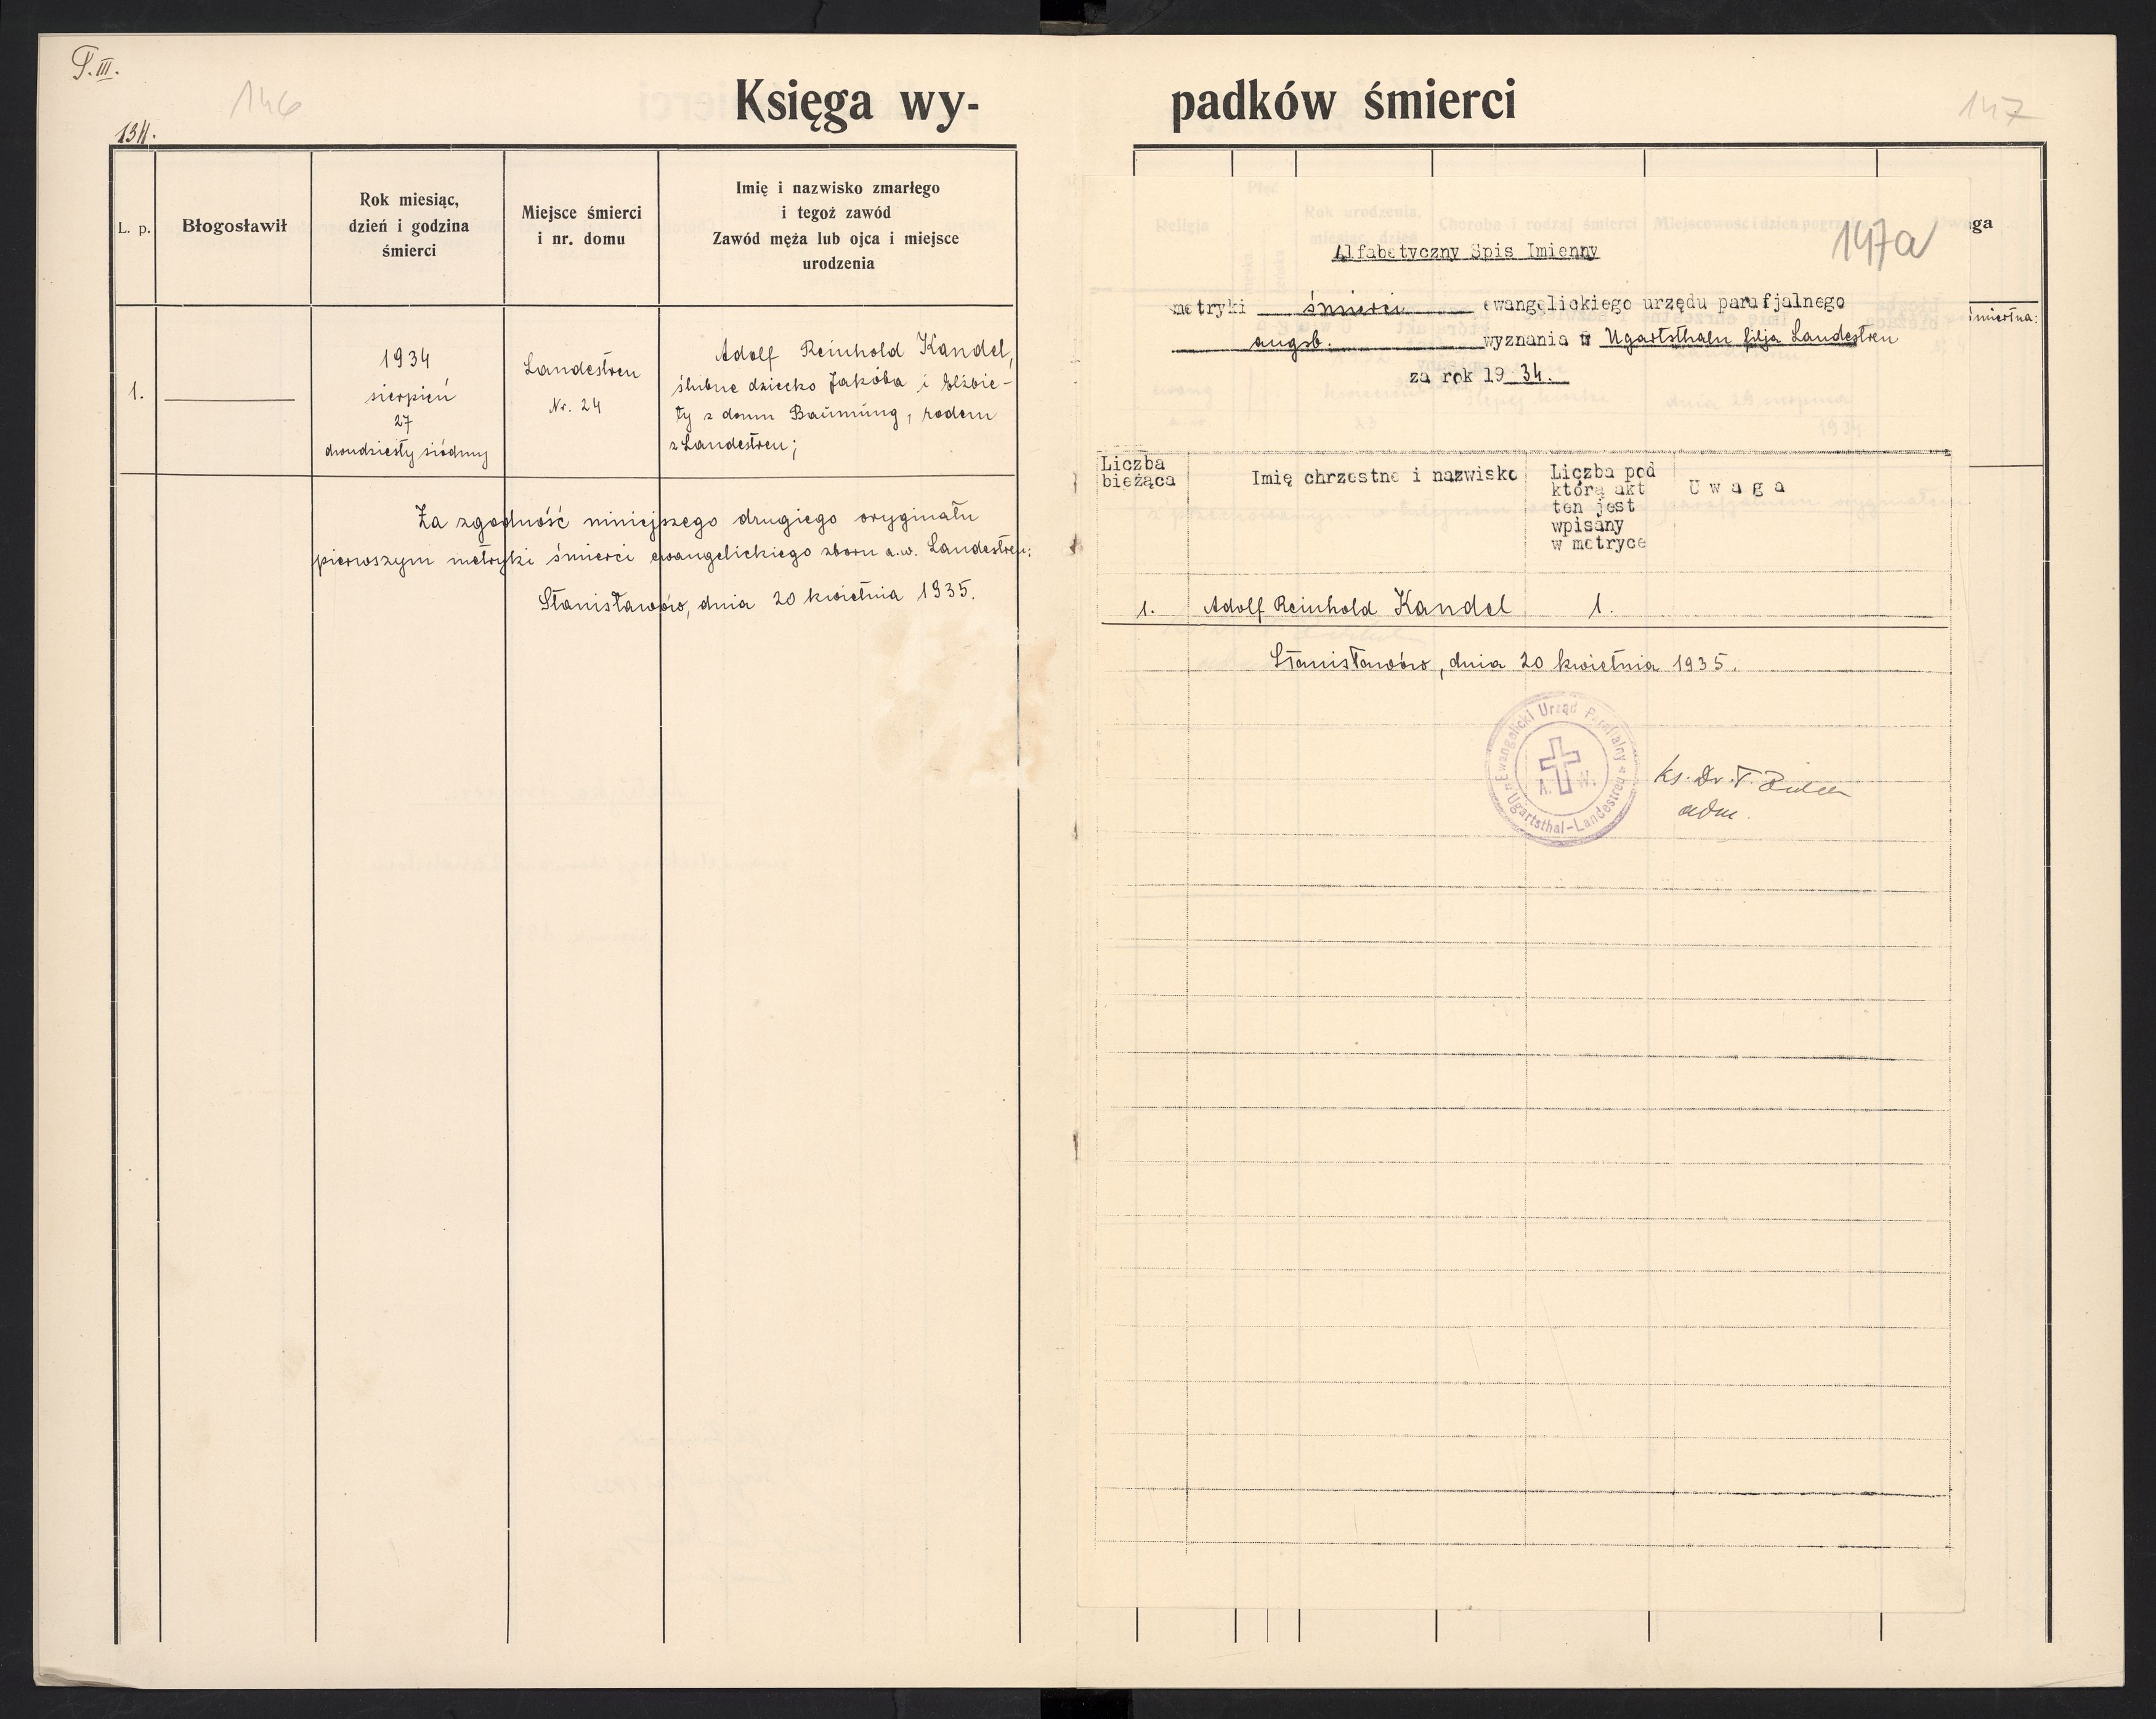 T. III.
146
134.
Księga wy-
L. p.
Błogosławił
Rok miesiąc,
dzień i godzina
śmierci
Miejsce śmierci
i nr. domu
Imię i nazwisko zmarłego
i tegoż zawód
Zawód męża lub ojca i miejsce
urodzenia
1.
1934
sierpień
27
dwudziesty siódmy
Landestreu
Nr. 24
Adolf Reinhold Kandel,
ślubne dziecko Jakóba i Elżbie-
ty z domu Baumung, rodem
z Landestreu;
Za zgodność niniejszego drugiego oryginału
pierwszym metryki śmierci ewangelickiego zboru a.w. Landestreu:
Stanisławów, dnia 20 kwietnia 1935.
padków śmierci
147
ga
śmiertna:
147a
Alfabetyczny Spis Imienny
metryki śmierci ewangelickiego urzędu parafjalnego
augsb. wyznania w Ugartsthalu filja Landestreu
za rok 19 34.
Liczba
bieżąca
Imię chrzestne i nazwisko
Liczba pod
którą akt
ten jest
wpisany
w metryce
U w a g a
1. Adolf Reinhold Kandel 1.
Stanisławów, dnia 20 kwietnia 1935.
Ewangelicki Urząd Parafialny
w Ugartsthal-Landestreu
A. W.
Ks. Dr. T.
adm.